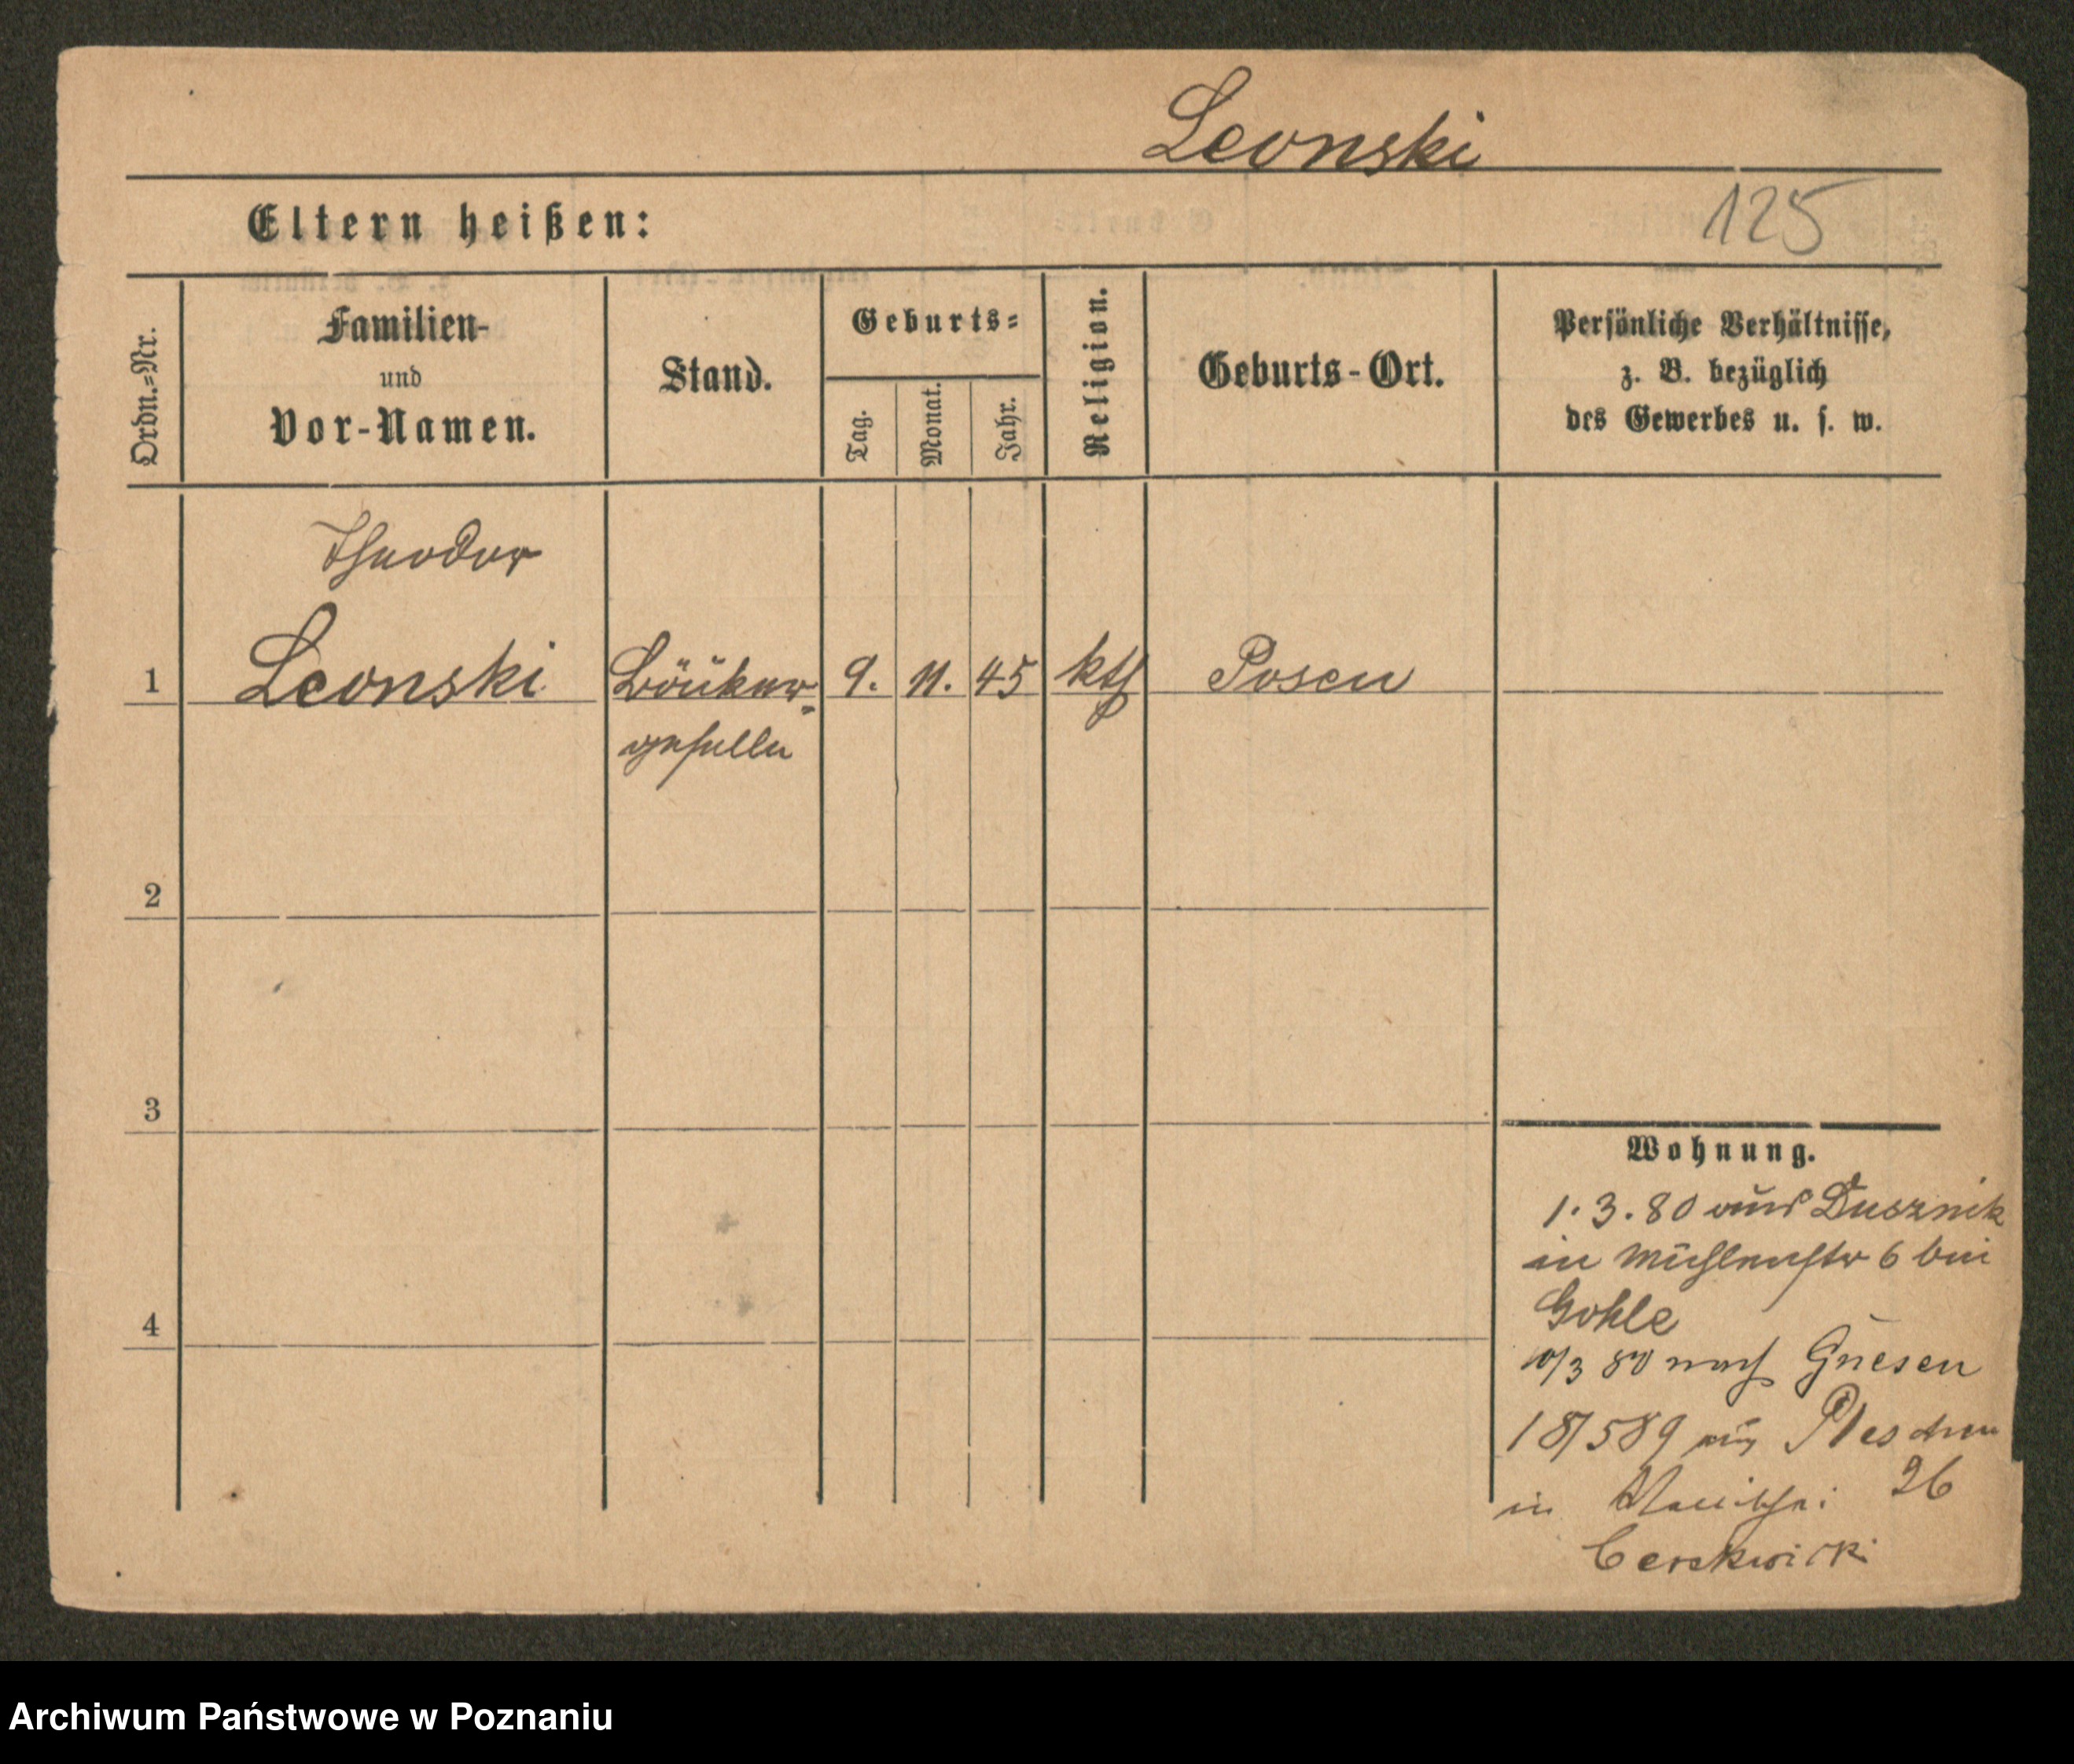 Leonski
125
Eltern heißen:
Ordn.-Nr.
Familien-
und
Vor-Namen.
Stand.
Geburts-
Tag.
Monat.
Jahr.
Religion.
Geburts-Ort.
Persönliche Verhältnisse,
z. B. bezüglich
des Gewerbes u. s. w.
Theodor
1 Leonski 9. 11. 45 kth Posen
geselle
2
3
4
Wohnung.
1. 3. 80 aus Dusznik
in Mühlenstr 6 bei
Gohle
10/3 80 nach Gnesen
18/5 89 aus Pleschen
in 26
Cerekwicki
Archiwum Państwowe w Poznaniu